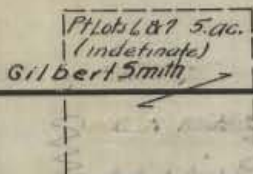 Pt Lots 6 & 7 5.ac.
(indefinate)
Gilbert Smith